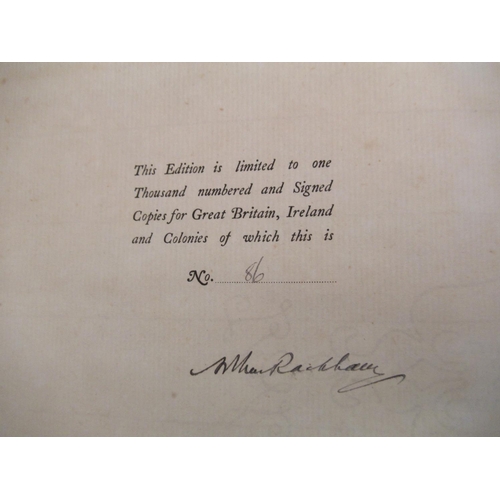 This Edition is limited to one
Thousand numbered and Signed
Copies for Great Britain, Ireland
and Colonies of which this is
No. 86
Arthur Rackham